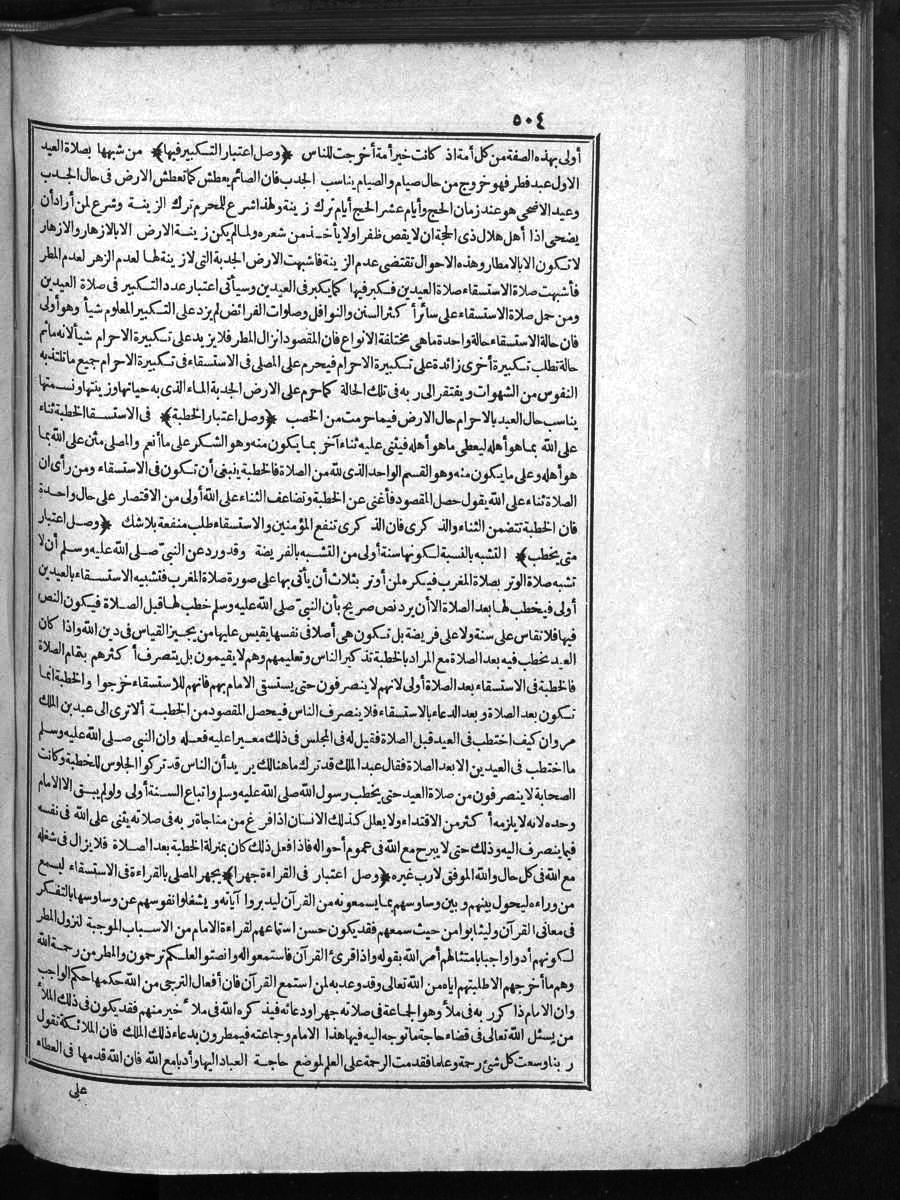 ٥٠٤
أولى بهذه الصفة من كل أمة اذ كانت خير أمة أخرجت للناس ﴿وصل اعتبار التكبير فيها﴾ من شبهها بصلاة العيد
الاول عيد فطر فهو خروج من حال صيام والصيام يناسب الجدب فان الصائم يعطش كما تعطش الارض فى حال الجدب
وعيد الاضحى هو عند زمان الحج وأيام عشر الحج أيام ترك زينة ولهذا شرع للمحرم ترك الزينة وشرع لمن أراد أن
يضحى اذا أهل هلال ذى الحجة ان لا يقص ظفرا ولا يأخذ من شعره ولما لم يكن زينة الارض الا بالازهار والازهار
لا تكون الا بالامطار وهذه الاحوال تقتضى عدم الزينة فاشبهت الارض الجدبة التى لا زينة لها لعدم الزهر لعدم المطر
فأشبهت صلاة الاستسقاء صلاة العيدين فكبر فيها كما يكبر فى العيدين وسيأتى اعتبار عدد التكبير فى صلاة العيدين
ومن حمل صلاة الاستسقاء على سائر أكثر السنن والنوافل وصلوات الفرائض لم يزد على التكبير المعلوم شيأ وهو أولى
فان حالة الاستسقاء حالة واحدة ما هى مختلفة الانواع فان المقصود انزال المطر فلا يزيد على تكبيرة الاحرام شيأ لانه ما ثم
حالة تطلب تكبيرة أخرى زائدة على تكبيرة الاحرام فيحرم على المصلى فى الاستسقاء فى تكبيرة الاحرام جميع ما تلتذ به
النفوس من الشهوات ويفتقر الى ربه فى تلك الحالة كما حرم على الارض الجدبة الماء الذى به حياتها وزينتها ونسمتها
يناسب حال العبد بالاحرام حال الارض فيما حرمت من الخصب ﴿وصل اعتبار الخطبة﴾ فى الاستسقا الخطبة ثناء
على الله بما هو أهله ليعطى ما هو أهله فيثنى عليه ثناء آخر بما يكون منه وهو الشكر على ما أنعم والمصلى مثن على الله بما
هو أهله وعلى ما يكون منه وهو القسم الواحد الذى لله من الصلاة فالخطبة ينبغى أن تكون فى الاستسقاء ومن رأى ان
الصلاة ثناء على الله يقول حصل المقصود فأغنى عن الخطبة وتضاعف الثناء على الله أولى من الاقتصار على حال واحدة
فان الخطبة تتضمن الثناء والذكرى فان الذكرى تنفع المؤمنين والاستسقاء طلب منفعة بلا شك ﴿وصل اعتبار
متى يخطب﴾ التشبه بالسنة لكونها سنة أولى من التشبه بالفريضة وقد ورد عن النبى صلى الله عليه وسلم أن لا
تشبه صلاة الوتر بصلاة المغرب فيكره لمن أوتر بثلاث أن يأتى بها على صورة صلاة المغرب فتشبيه الاستسقاء بالعيدين
أولى فيخطب لها بعد الصلاة الا أن يرد نص صريح بأن النبى صلى الله عليه وسلم خطب لها قبل الصلاة فيكون النص
فيها فلا تقاس على سنة ولا على فريضة بل تكون هى أصلا فى نفسها يقيس عليها من يجيز القياس فى دين الله واذا كان
العيد يخطب فيه بعد الصلاة مع المراد بالخطبة تذكير الناس وتعليمهم وهم لا يقيمون بل يتصرف أكثرهم بتمام الصلاة
فالخطبة فى الاستسقاء بعد الصلاة أولى لانهم لا ينصرفون حتى يستسقى الامام بهم فانهم للاستسقاء خرجوا والخطبة انما
تكون بعد الصلاة وبعد الدعاء بالاستسقاء فلا ينصرف الناس فيحصل المقصود من الخطبة ألا ترى الى عبد بن الملك
مروان كيف اختطب فى العيد قبل الصلاة فقيل له فى المجلس فى ذلك معيرا عليه فعله وان النبى صلى الله عليه وسلم
ما اختطب فى العيدين الا بعد الصلاة فقال عبد الملك قد ترك ما هنالك يريد أن الناس قد تركوا الجلوس للخطبة وكانت
الصحابة لا ينصرفون من صلاة العيد حتى يخطب رسول الله صلى الله عليه وسلم واتباع السنة أولى ولو لم يبق الا الامام
وحده لانه لا يلزمه أكثر من الاقتداء ولا يعلل كذلك الانسان اذا فرغ من مناجاة ربه فى صلاته يثنى على الله فى نفسه
فيما ينصرف اليه وذلك حتى لا يبرح مع الله فى عموم أحواله فاذا فعل ذلك كان بمنزلة الخطبة بعد الصلاة فلا يزال فى شغله
مع الله فى كل حال والله الموفق لا رب غيره ﴿وصل اعتبار فى القراءة جهرا﴾ يجهر المصلى بالقراءة فى الاستسقاء ليسمع
من وراءه ليحول بينهم وبين وساوسهم بما يسمعونه من القرآن ليدبروا آياته ويشغلوا نفوسهم عن وساوسها بالتفكر
فى معانى القرآن وليثابوا من حيث سمعهم فقد يكون حسن استماعهم لقراءة الامام من الاسباب الموجبة لنزول المطر
لكونهم أدوا واجبا بامتثالهم أمر الله بقوله واذا قرئ القرآن فاستمعوا له وانصتوا لعلكم ترحمون والمطر من رحمة الله
وهم ما أخرجهم الا طلبتهم اياه من الله تعالى وقد وعد به لمن استمع القرآن فان أفعال الترجى من الله حكمها حكم الواجب
وان الامام اذا كرر به فى ملأ وهو الجماعة فى صلاته جهرا ودعائه فيذكره الله فى ملأ خير منهم فقد يكون فى ذلك الملأ
من يسئل الله تعالى فى قضاء حاجة ما توجه اليه فيها هذا الامام وجماعته فيمطرون بدعاء ذلك الملك فان الملائكة تقول
ربنا وسعت كل شئ رحمة وعلما فقدمت الرحمة على العلم لموضع حاجة العباد اليها وأدبا مع الله فان الله قدمها فى العطاء
على